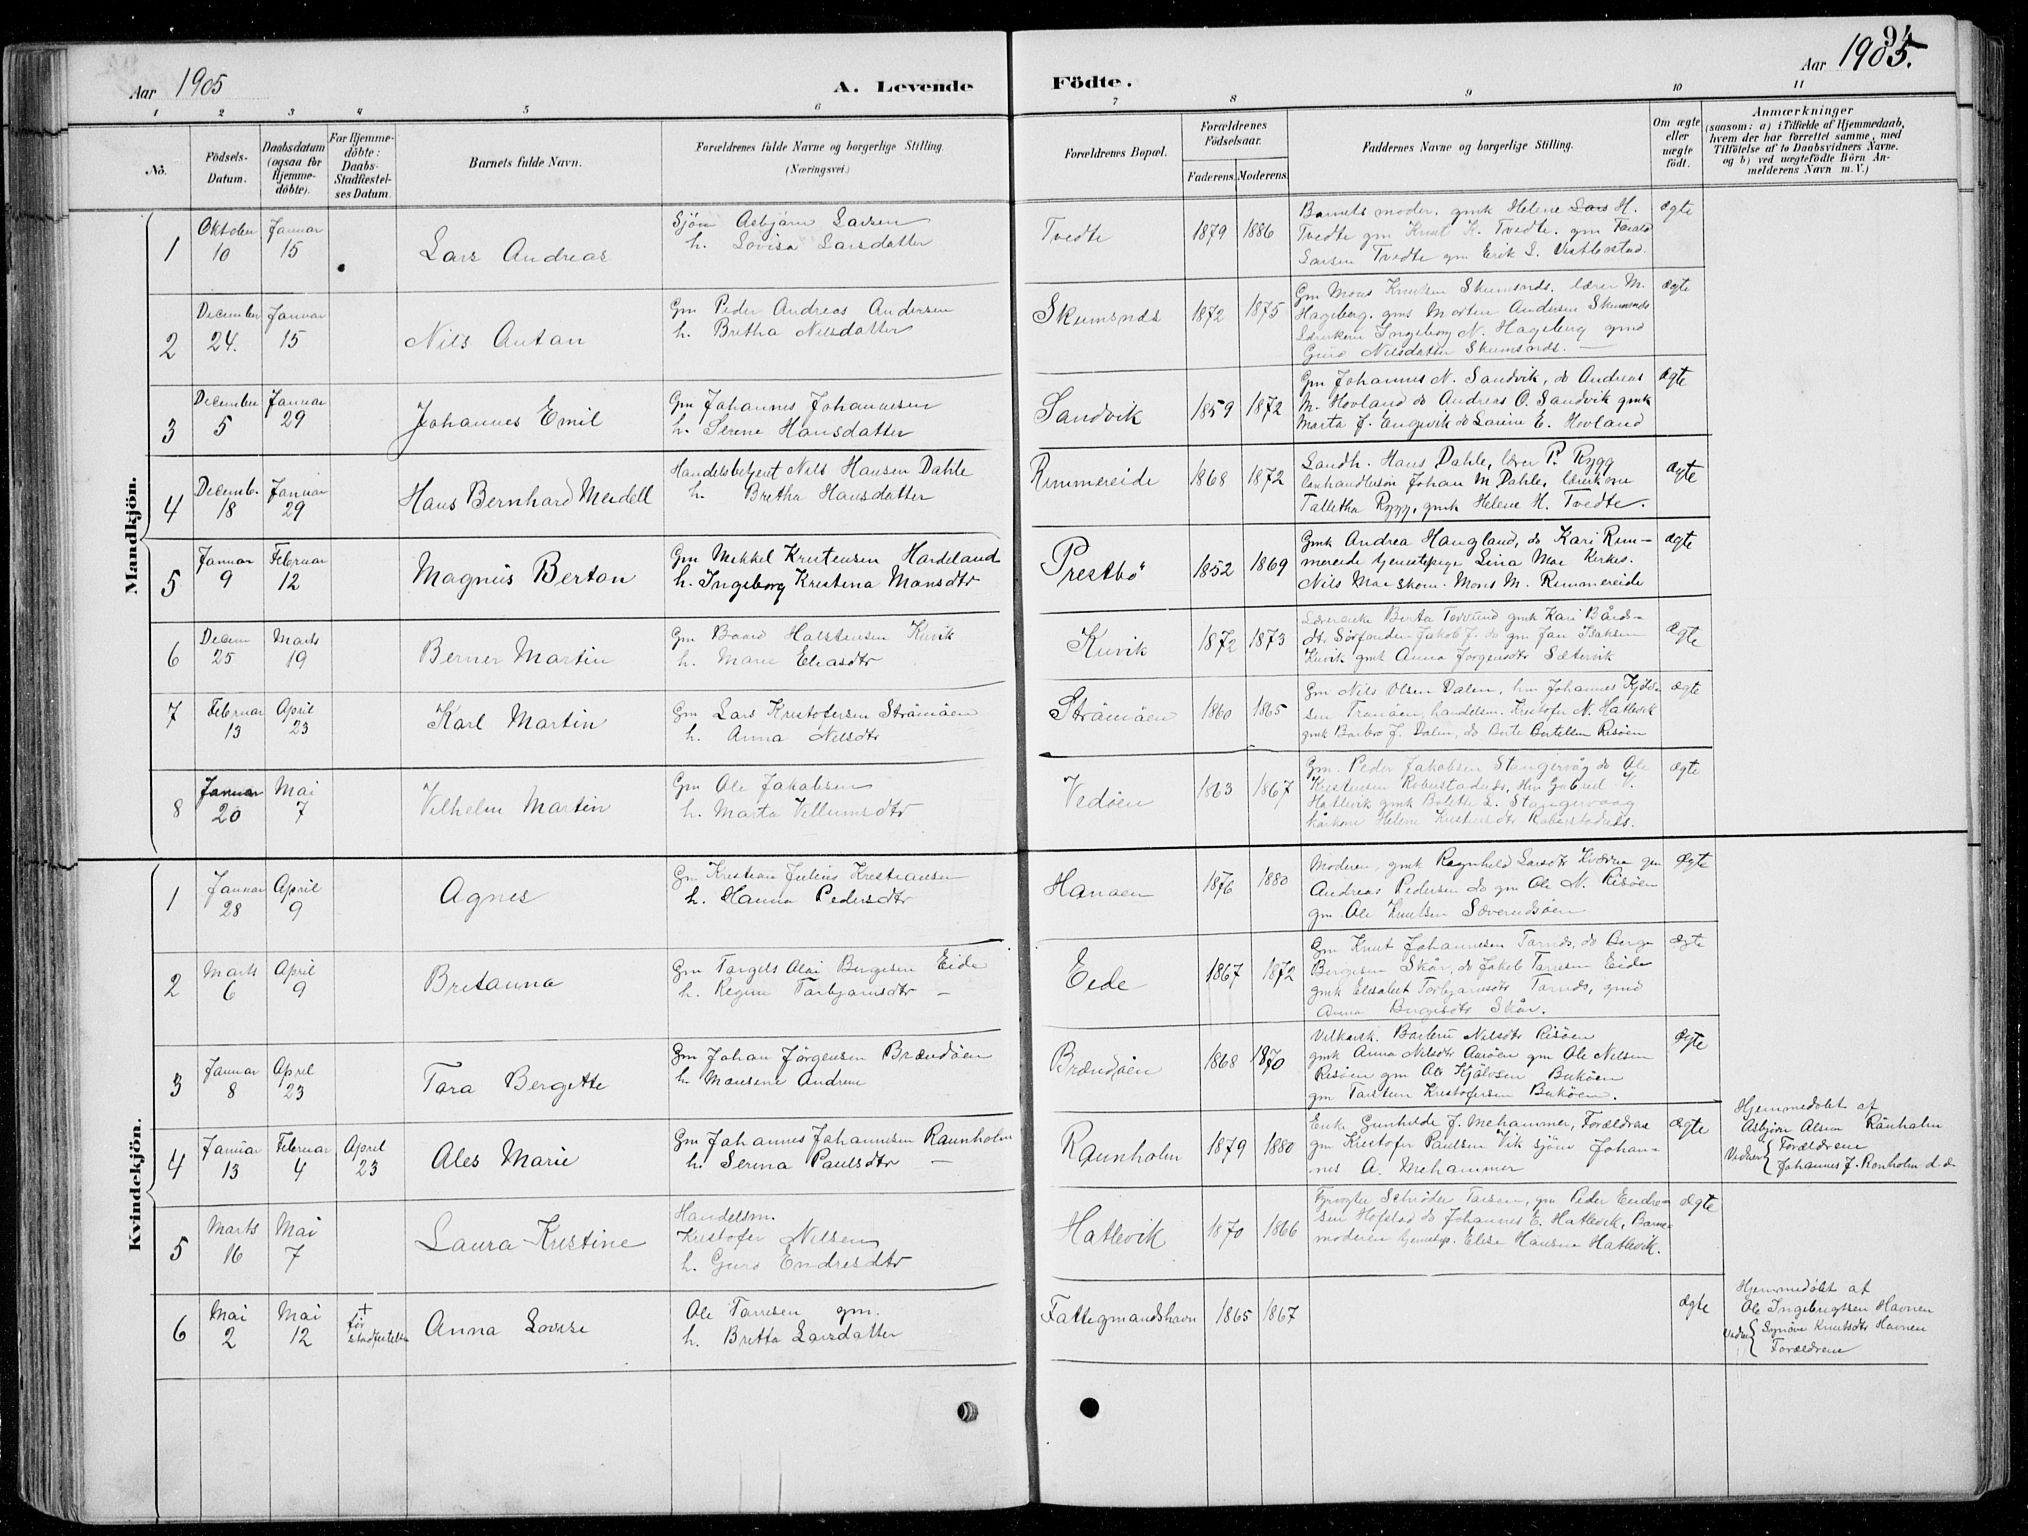 94
Aar 1905
A. Levende Födte.
Aar 1905.
1 2 3 4 5 6 7 8 9 10 11
No.
Födsels-
Datum.
Daabsdatum
(ogsaa for
Hjemme-
döbte).
For Hjemme-
döbte:
Daabs-
Stadfæstel-
ses Datum.
Barnets fulde Navn.
Forældrenes fulde Navne og borgerlige Stilling.
(Næringsvei.)
Forældrenes Bopæl.
Forældrenes
Födselsaar.
Faderens. Moderens.
Faddernes Navne og borgerlige Stilling.
Om ægte
eller
uægte
födt.
Anmærkninger
(saasom: a) i Tilfælde af Hjemmedaab,
hvem der har forrettet samme, med
Tilföielse af to Daabsvidners Navne.
og b) ved uægtefödte Börn An-
melderens Navn m. V.)
Mandkjön.
1
Oktober
10
Januar
15
Lars Andreas
Sjöm Asbjörn Larsen
h. Lovisa Larsdatter
Tvedte
1879 1886
Barnets moder, gmk Helene Lars H.
Tvedte gm Knut K. Tvedte. gm
Larsen Tvedte gm Erik L.
ægte
2
December
24.
Januar
15
Nils Antan
Gm Peder Andreas Andersen
h. Bretha Nilsdatter
Skumsnds
1872 1875
Gm Mons Knutsen Skumsnds. lærer M.
Hageberg. gms Morten Andersen Skumsnds
Lærerkone Ingeborg N. Hageberg gmd
Guro Nilsdatter Skumsnds.
ægte
3
December
5
Januar
29
Johannes Emil
Gm Johannes Johannesen
h. Serine Hansdatter
Sandvik
1859 1872
Gm Johannes N. Sandvik, do Andreas
M. Hovland do Andreas O. Sandvik gmk
Marta J. Engevik do Larine E. Hovland
ægte
4
Decemb.
18
Januar
29
Hans Bernhard Meidell
Handelsbetjent Nils Hansen Dahle
h. Bretha Hansdatter
Rimmereide
1868 1872
Landh. Hans Dahle, lærer P. Rygg
lanhandlersön Johan M Dahle, lærerkone
Talletha Rygg, gmk Helene H. Tvedte.
ægte
5
Januar
9
Februar
12
Magnus Bertan
Gm Mikkel Kristensen Hardeland
h. Ingeborg Kristina Mansdtr
Prestbö
1852 1869
Gmk Andrea Haugland, do Kari Rim-
mereide tjenestepige Lina Moe Kirkes.
Nils Moe skom. Mons M. Rimmereide
ægte
6
Decem
25
Marts
19
Berner Martin
Gm Baard Halstensen Kuvik
h. Marie Eliasdtr
Kuvik
1872 1873
Berta gmk Kari Bårds-
dtr Sörfonden Jakob J. do gm Jan Isaksen
Kuvik gmk Anna Jorgensdtr Sætervik
ægte
7
Februar
13
April
23
Karl Martin
Gm Lars Kristofersen Strömöen
h. Anna Nilsdtr
Strömöen
1860 1865
Gm Nils Olsen Dalen, hm Johannes Kjöls-
sen Tranöen, handelsm. Kristofer N. Hatlevik
gmk Barbro J. Dalen, do Berte Bertelsen Risöen
ægte
8
Januar
20
Mai
7
Vilhelm Martin
Gm Ole Jakobsen
h. Marta Villumsdtr
Vedöen
1863 1867
Gm. Peder Jakobsen Stangervåg do Ole
Kristensen Robertsadnes, Hm Gabriel V.
Hatlevik gmk Bolette L. Stangervaag
Kårkone Helene Kristensdtr
ægte
Kvindekjön.
1
Januar
28
April
9
Agnes
Gm Kristian Julius Kristiansen
h. Hanna Pedersdtr
Hanöen
1876 1880
Moderen, gmk Ragnhild Larsdtr Kværna gm
Andreas Pedersen do gm Ole N. Risöen
gm. Ole Knutsen Sæverudsöen
ægte
2
Marts
6
April
9
Bretanna
Gm Targels Olai Bergesen Eide
h. Regine Torbjornsdtr —
Eide
1867 1872
Gm Knut Johannesen Tarnds, do Berge
Bergesen Skår, do Jakob Tarresen Eide
gmk Elisabet Torbjornsdtr Tarnds, gmd
Anna Bergesdtr Skår.
ægte
3
Januar
8
April
23
Tara Bergitte
Gm Johan Jörgensen Brændöen
h. Monsene Andrine
Brændöen
1868 1870
Nilsdtr Risöen
gmk Anna Nilsdtr Aasöen gm Ole Nilsen
Risöen gm Ole Kjölvsen Buköen
gm Tarsten Kristofersen Buköen.
ægte
4
Januar
13
Februar
4
April
23
Ales Marie
Gm Johannes Johannesen Raunholm
h. Serina Paulsdtr —
Raunholm
1879 1880
Enk. Gunhilde J. Mehammer, Forældrene
gm Kristofer Paulsen Vik sjöm Johan-
nes A. Mehammer
ægte
Hjemmedöbt af
Asbjörn Olsen Raunholm
Vidner { Forældrene
Johannes J. Ronholm d.e.
5
Marts
16
Mai
7
Laura Kristine
Handelsm.
Kristofer Nilsen
h. Guro Endresdtr
Hatlevik
1870 1866
Fyrvogter Schröder Tarsen, gm Peder Endre-
sen Hofstad do Johannes E. Hatlevik, Barne-
moderen tjenestep. Elise Hansen Hatlevik.
ægte
6
Mai
2
Mai
12
+
för
stadfæstelsen
Anna Lovise
Ole Tarresen gm.
h. Britta Larsdatter
Fattegmandshavn
1865 1867
ægte
Hjemmedöbt af
Ole Ingebrigtsen Havnen
Vidner { Synöve Knutsdtr Havnen
Forældrene